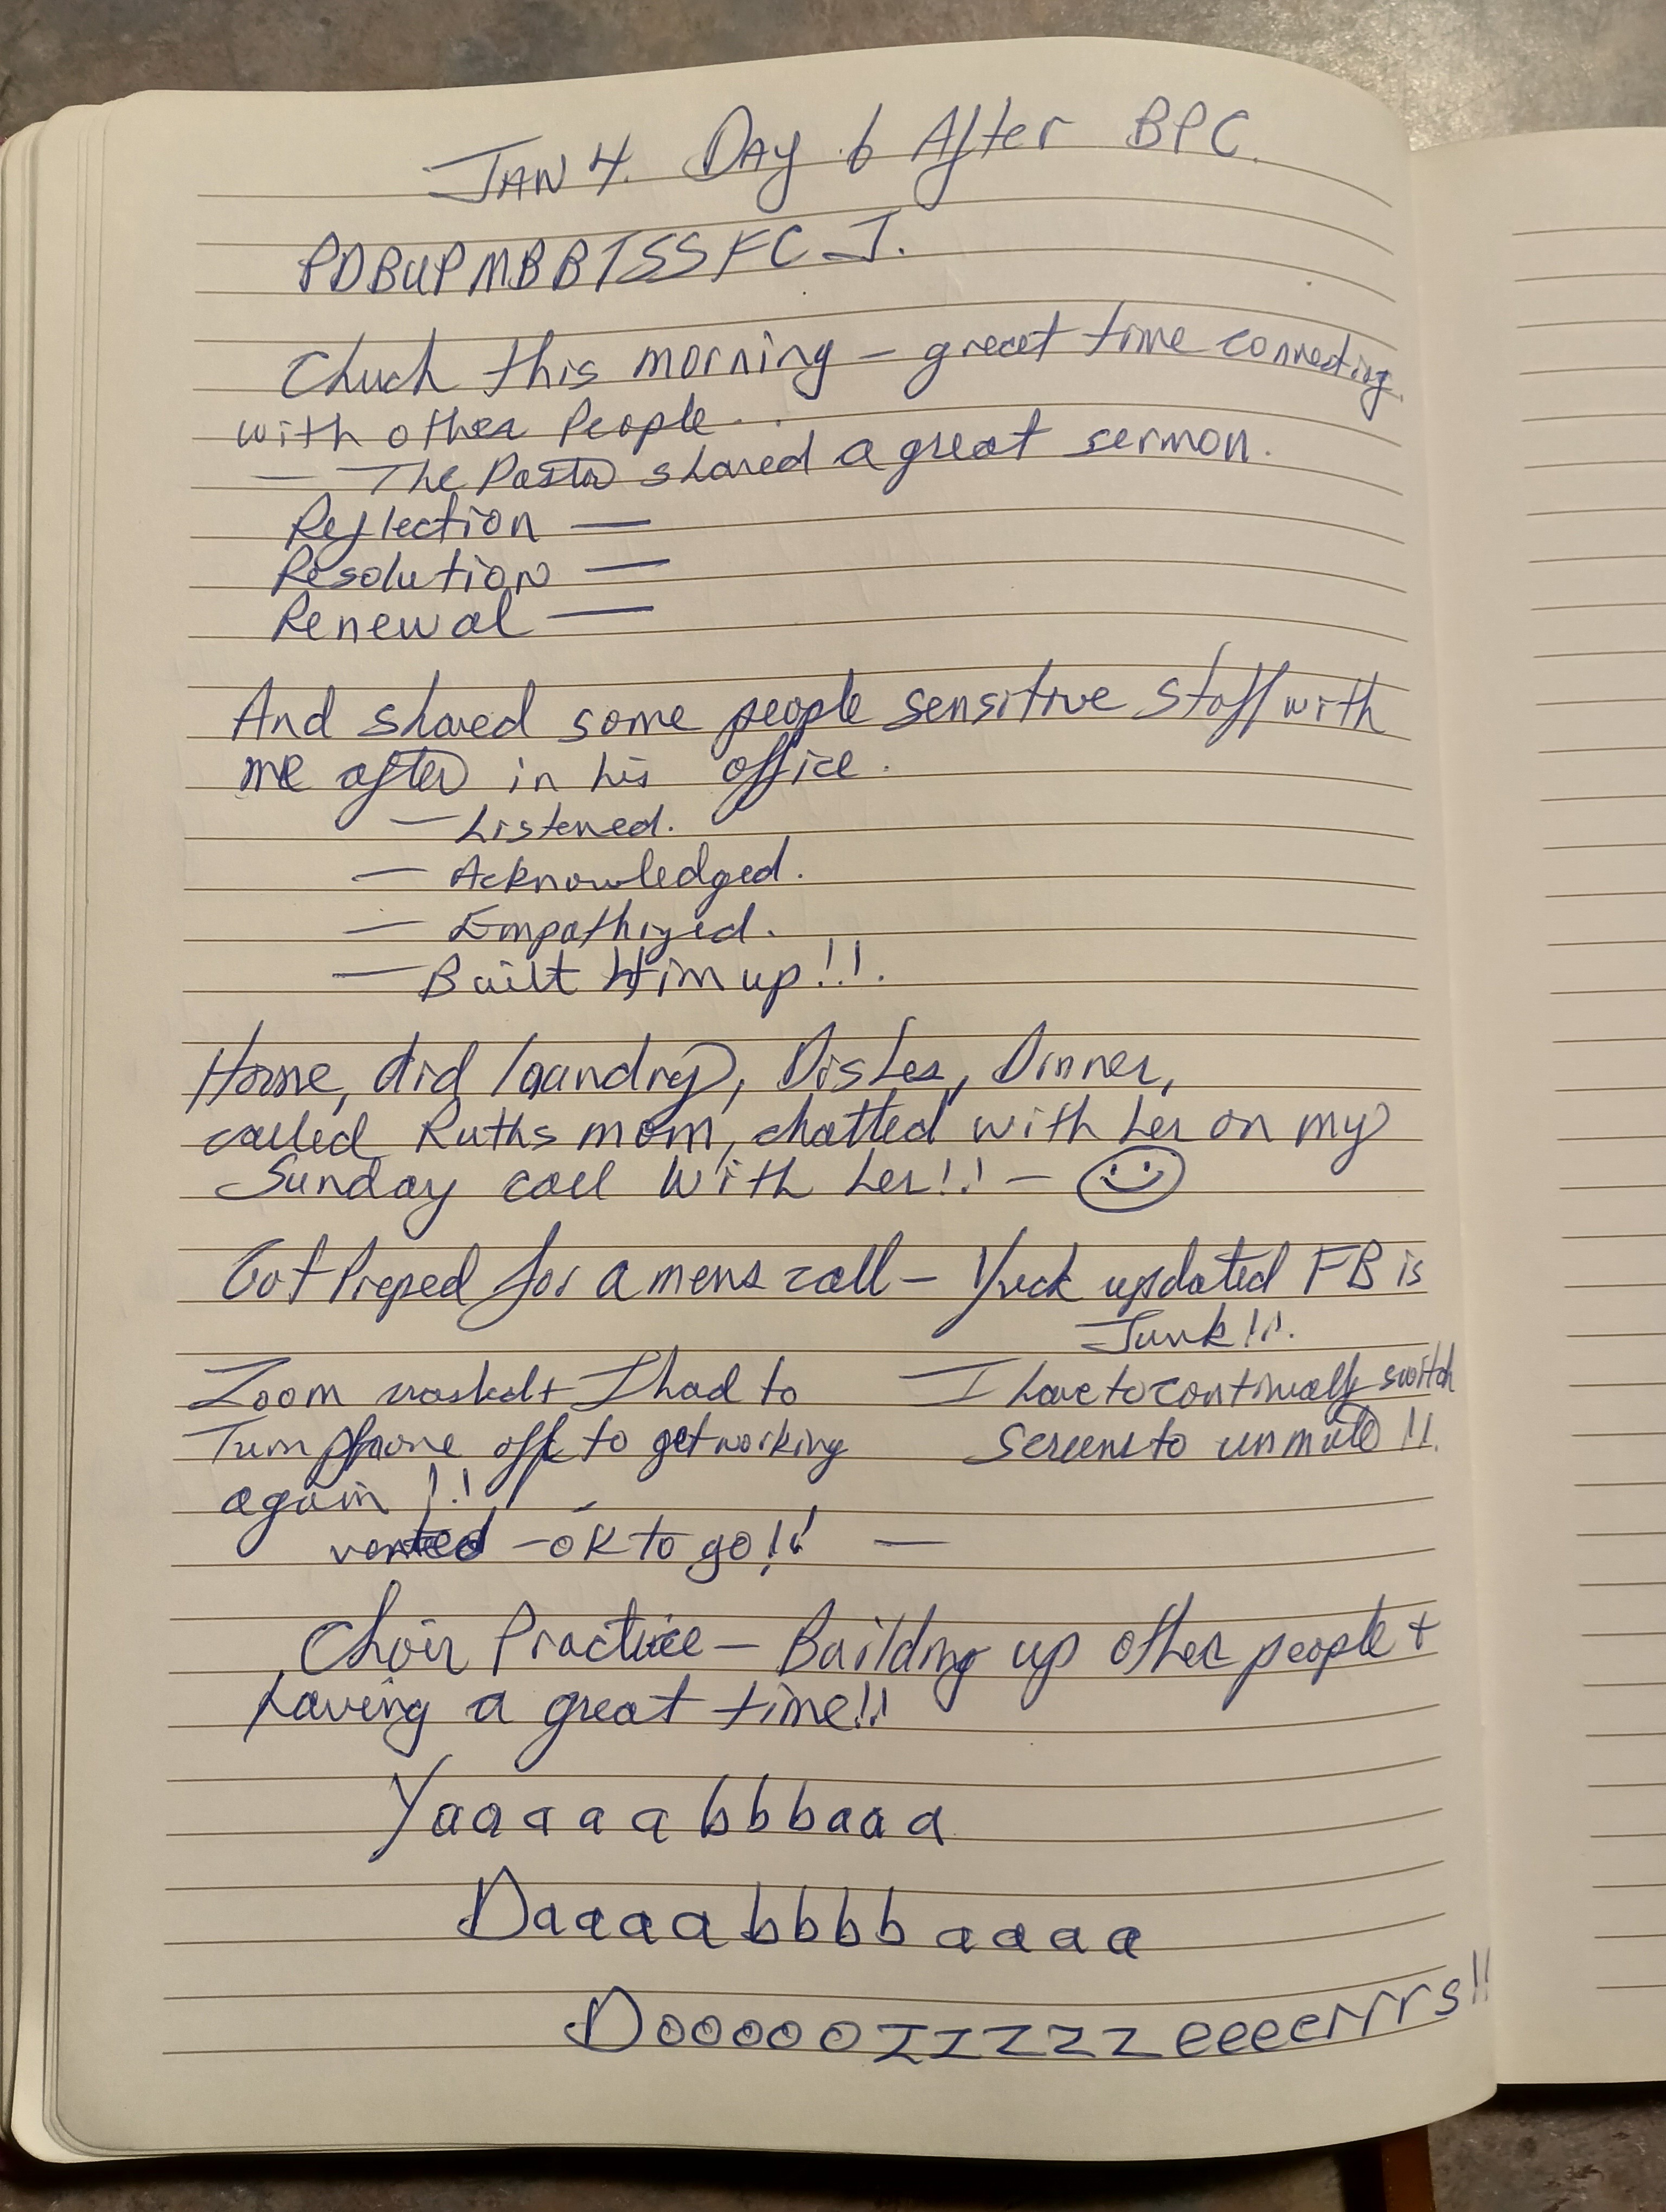 JAN 4. DAY 6 After BPC.
PDBUPMBBTSSFCJ.
Chuch this morning – great time connecting
with other People...
— The Pastor shared a great sermon.
Reflection —
Resolution —
Renewal —
And shared some people sensitive stuff with
me after in his office.
— Listened.
— Acknowledged.
— Empathized.
— Built Him up!!!.
Home, did laundry, Dishes, Dinner,
called Ruths mom, chatted with her on my
Sunday call with her!! – ☺
Got Preped for a mens call – Yuck updated FB is
Junk!!!.
Zoom crashed + I had to
Turn phone off to get working
again!!
I have to continually switch
screens to unmute!!.
vented – ok to go!! —
Choir Practice – Building up other people +
having a great time!!
Yaaaaabbbaaa
Daaaabbbbaaaa
Dooooozzzzzeeeerrrrs!!